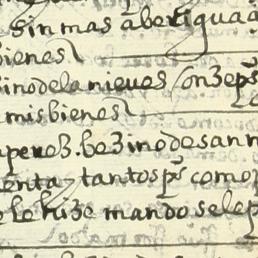 sin mas aberigua
bienes
zino de la nieues son zeps
mis bienes
perez bezino de san
enta y tantos ps como
le hize mando se le p